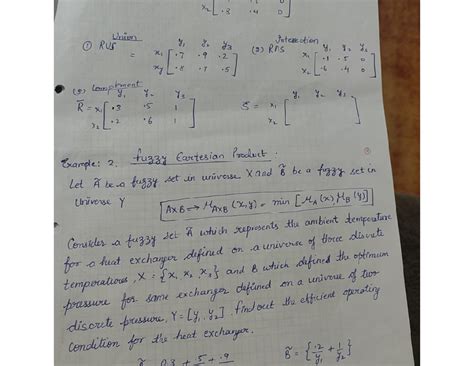 x₂ [ .3 .4 0 ]
Union
Intersection
① RUS = y₁ y₂ y₃
x₁ [ .7 .9 .2
.8 .7 .5 ]
(2) RnS y₁ y₂ y₃
x₁ [ 5 0
x₂ .6 .4 0 ]
(3) Complement
y₁ y₂ y₃
R̄ = x₁ [ .3 .5 1
x₂ .2 .6 1 ]
S̄ = y₁ y₂ y₃
x₁ [
x₂ ]
Example: 2. fuzzy Cartesian Product :
Let Ã be a fuzzy set in universe X and B̃ be a fuzzy set in
Universe Y
AxB ⟺ μ_AxB (x,y) = min [μ_A(x), μ_B(y)]
Consider a fuzzy set Ã which represents the ambient temperature
for a heat exchanger defined on a universe of three discrete
temperatures, X = {x₁ x₂ x₃} and B which defined the optimum
pressure for same exchanger defined on a universe of two
discrete pressure, Y = [y₁, y₂]. find out the efficient operating
Condition for the heat exchanger.
0.3 + .5 + .9
B̃ = {.2/y₁ + 1/y₂}